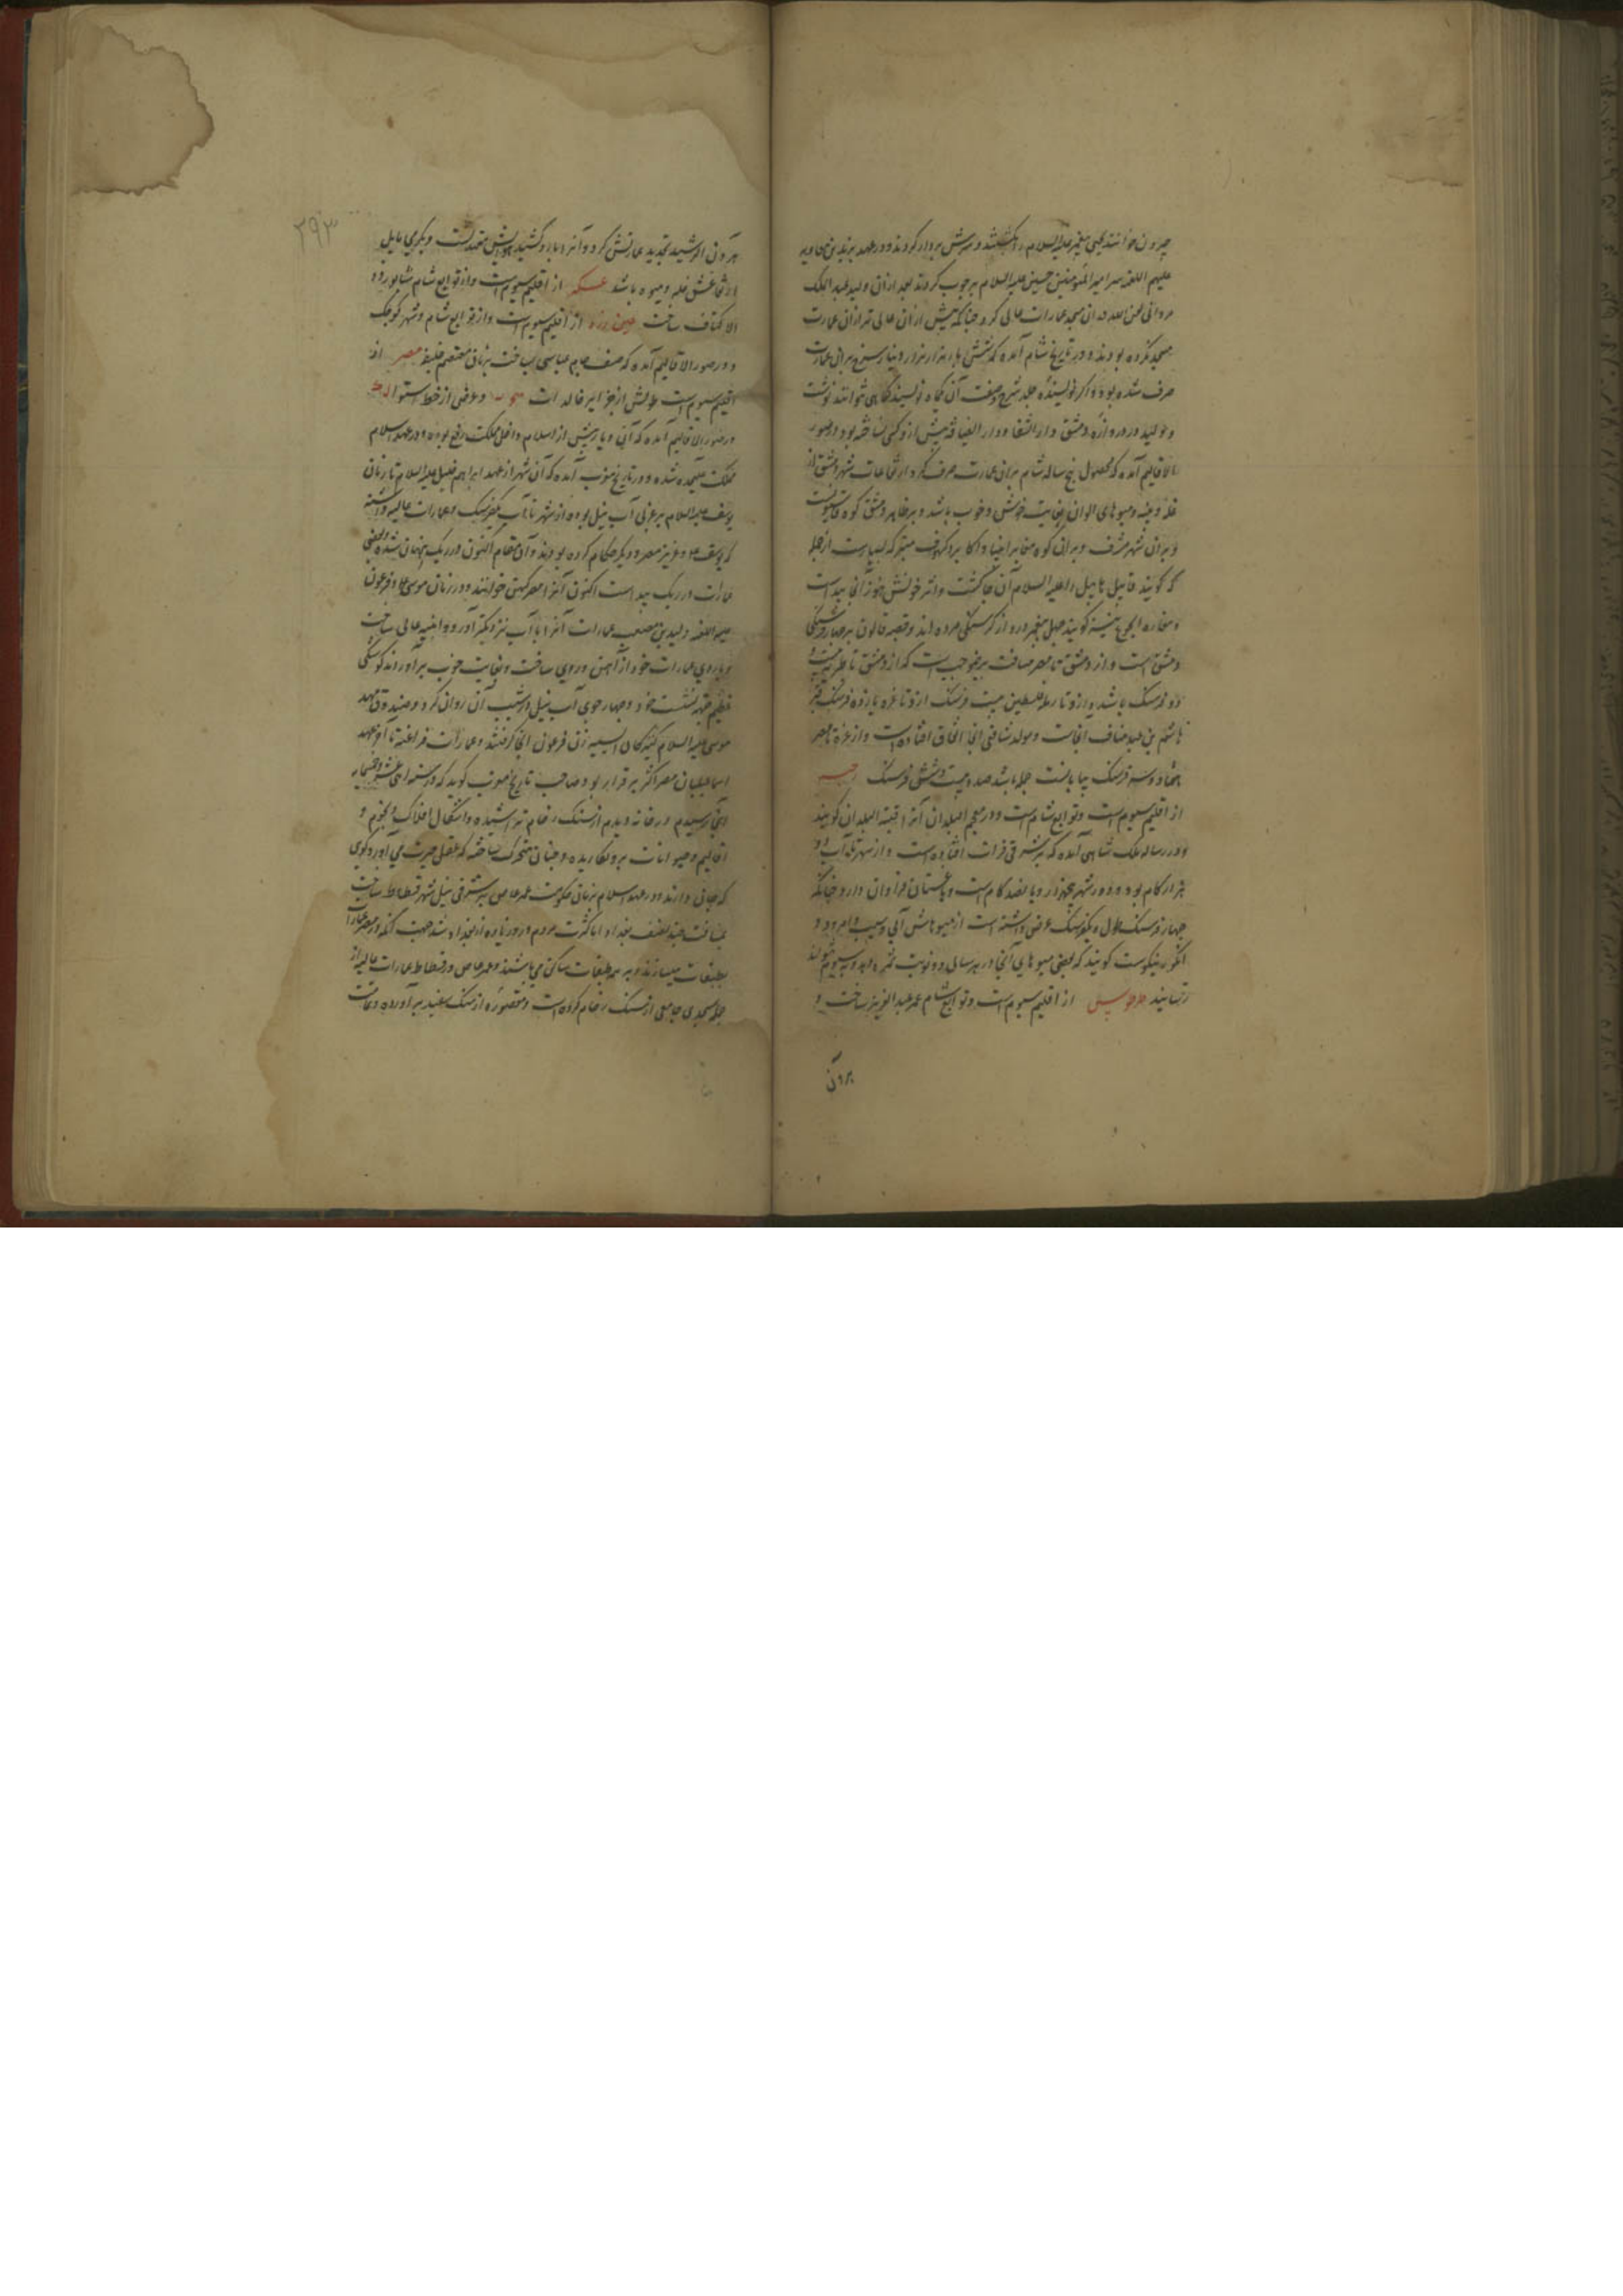 جیرون خوانند یحیی پیغمبر علیه السلام را بکشتند و سرش بردار کردند و در عهد یزید بن معاویه
علیهم اللعنه سر امیر المؤمنین حسین علیه السلام بر چوب کردند بعد از آن ولید عبد الملک
مروانی در آن مسجد عمارات عالی کرد چنانکه پیش از آن عالی تر از آن عمارت
مسجد نکرده بودند و در تاریخ شام آمده که شش بار هزار هزار دینار سرخ بر آن عمارت
صرف شده بوده و اگر نویسنده جلد شرح صفت آن نویسد کماهی نتوانند نوشت
و ولید در دروازه دمشق دار الشفا و دار الضیافه پیش از و کسی نساخته بود در صور
الاقالیم آمده که محصول پنج ساله شام بر آن عمارت صرف کرد ارتفاعات شهر دمشق از
غله و پنبه و میوهای الوان بغایت خوش و خوب باشد و بر ظاهر دمشق کوه قاسیونست
و بر آن شهر مشرف و بر آن کوه مقابر انبیا و اکابر و کهوف متبرکه بسیارست از جمله
که گویند قابیل هابیل را علیه السلام آن جا کشت و اثر خونش هنوز آنجا پیداست
و مغاره الجوع نیز گویند چهل پیغمبر درو از گرسنگی مرده اند و قصبه قانون بر چهار فرسنگی
دمشق است و از دمشق تا مصر مسافت برین موجب است که از دمشق تا طبریه بیست و
دو فرسنگ باشد و ازو تا رمله فلسطین بیست فرسنگ ازو تا غزه یازده فرسنگ قبر
هاشم بن عبد مناف آنجاست و مولد شافعی آنجا اتفاق افتاده است و از غزه تا مصر
هفتاد و سه فرسنگ بیابانست جمله باشد صد و بیست و شش فرسنگ رحبه
از اقلیم سیوم است و توابع شام است و در معجم البلدان آنرا قبته البلدان گویند
و در رساله ملک شاهی آمده که بر شرقی فرات افتاده است و از شهر تا آب دو
هزار گام بود و دور شهر پنجهزار و پانصد گام است و باغستان فراوان دارد چنانکه
چهار فرسنگ طول و یکفرسنگ عرض داشته است از میوهاش آبی و سیب و امرود و
انگور نیکوست گویند که بعضی میوهای آنجا در هر سالی دو نوبت ثمره دهد و سیوم نتواند
رسانید طرطوس از اقلیم سیوم است و توابع شام عمر عبد العزیز ساخت و
هرون
۳۹۳
هرون الرشید تجدید عمارتش کرد و آنرا بارو کشید هوایش معتدلست و بگرمی مایل
ارتفاعش غله و میوه باشد عسکر از اقلیم سیوم است و از توابع شام شاپور ذو
الاکتاف ساخت عین زربه از اقلیم سیوم است و از توابع شام و شهر کوچک
و در صور الاقالیم آمده که عباسی بساخت بزمان معتصم خلیفه مصر از
اقلیم سیوم است طولش از جزایر خالدات و عرض از خط استوا
در صور الاقالیم آمده که آن دیار پیش از اسلام داخل مملکت بوده و در عهد اسلام
مملکت علیحده شده و در تاریخ مغرب آمده که آن شهر از عهد ابراهیم خلیل علیه السلام تا زمان
یوسف علیه السلام بر غربی آب نیل بوده از شهر تا آب یکفرسنگ و عمارات عالیه داشته
که یوسف و عزیز مصر و دیگر حکام کرده بودند و آن مقام اکنون در ریگ پنهان شده و بعضی
عمارات در ریگ پیداست اکنون آنرا مصر کهن خوانند و در زمان موسی و فرعون
علیه اللعنه ولید بن مصعب عمارات آنرا با آب نزدیکتر آورد و ابنیه عالی ساخت
و باروی عمارات خود از آهن و روی ساخت و بغایت خوب برآوردند کوشکی
عظیم جهت نشست خود و چهار جوی آب نیل در شیب آن روان کرد و صندوق مهد
موسی علیه السلام کنیزکان آسیه زن فرعون آنجا گرفتند و عمارات فراعنه تا آخر عهد
اسماعیلیان مصر اکثر برقرار بود و صاحب تاریخ مغرب گوید که در سنه اثنی عشر و خمسمایه
آنجا رسیدم در خانه دیدم از سنگ رخام تراشیده و اشکال افلاک و نجوم و
اقالیم و حیوانات برو نگاریده و چنان متحرک ساخته که عقل حیرت می آورد گوی
که جان دارند و در عهد اسلام بزمان حکومت عمر عاص بر شرقی نیل شهر فسطاط ساخت
بمسافت چند نصف بغداد اما کثرت مردم درو زیاده از بغداد شد جهت آنکه در مصر عمارات
بطبقات میسازند و بر همه طبقات ساکن می باشند و عمر عاص در فسطاط عمارات عالیه از
جمله مسجدی جامعی از سنگ رخام کرده است و مقصوره از سنگ سفید برآورده و عاقبت